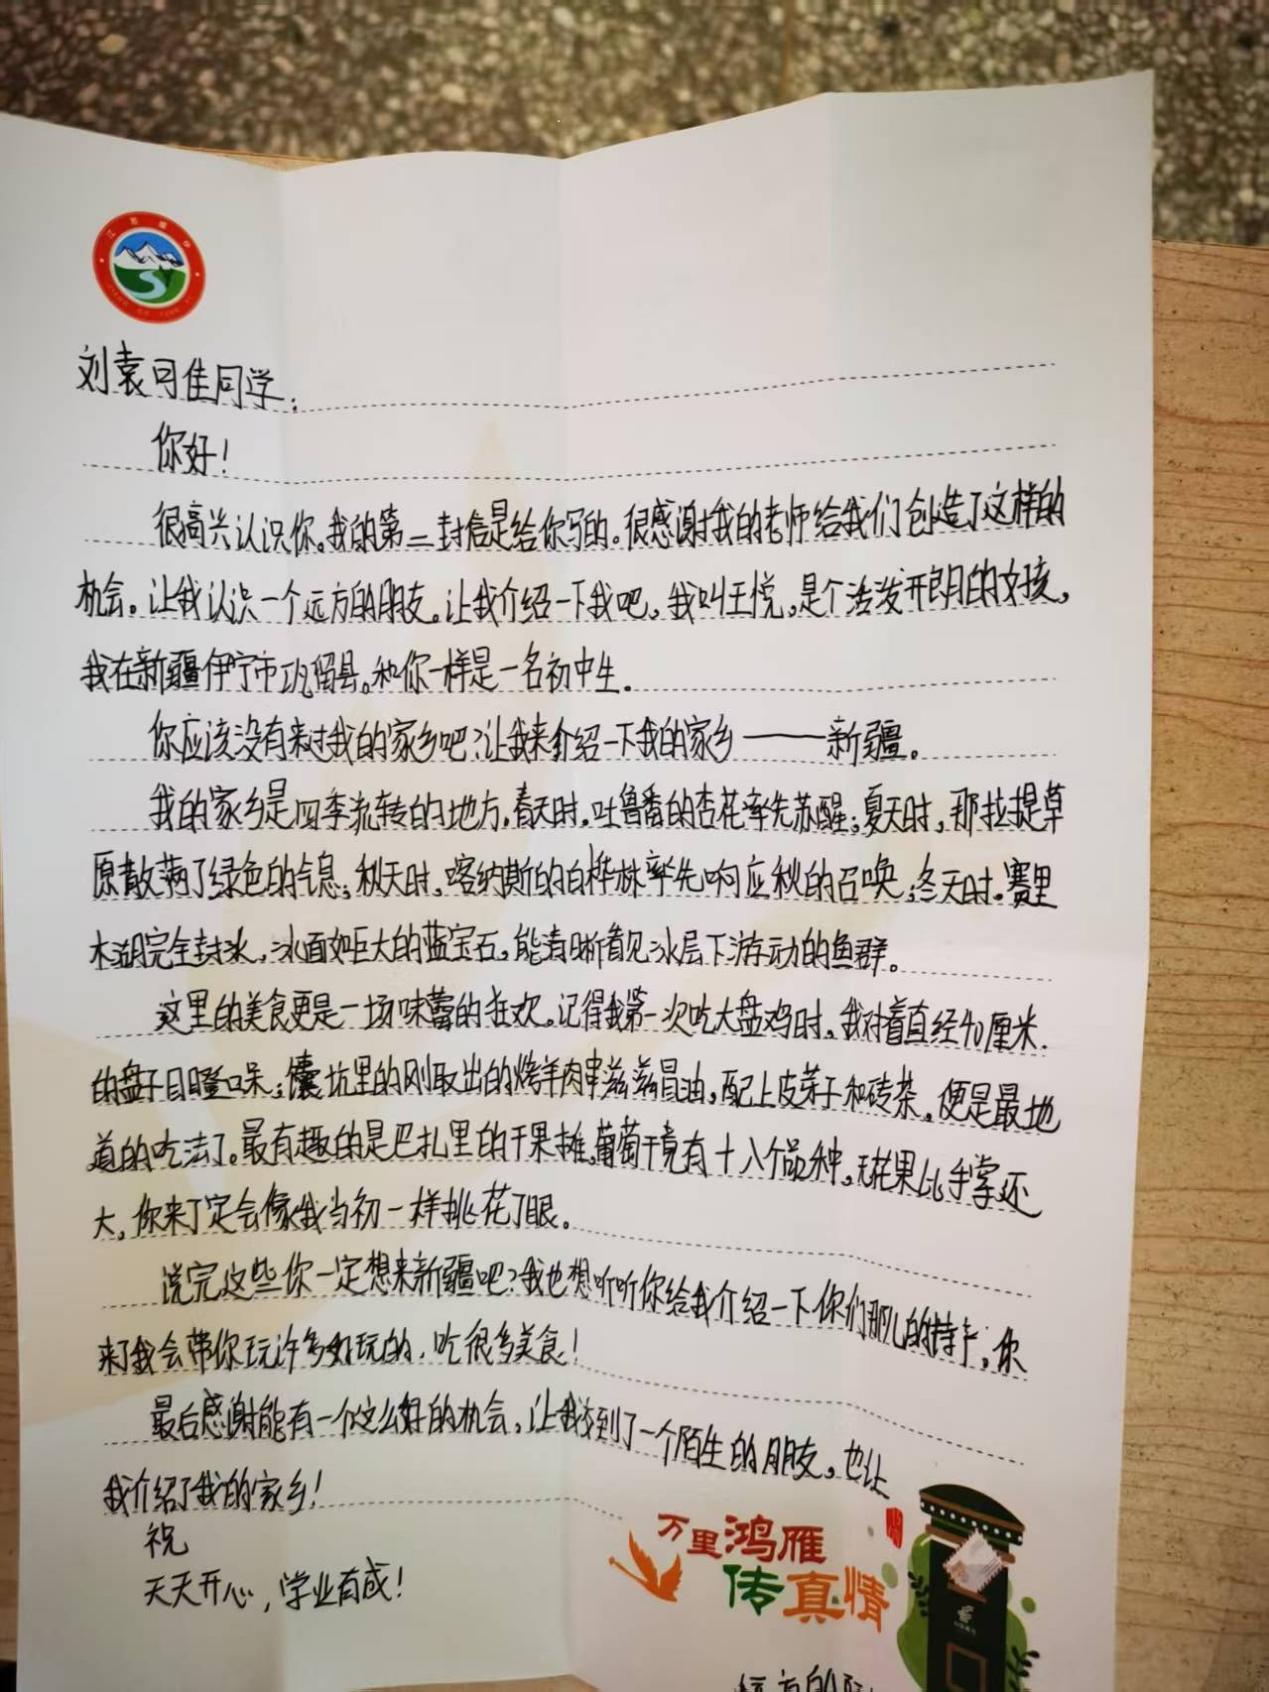 刘袁可佳同学:
你好!
很高兴认识你。我的第二封信是给你写的。很感谢我的老师给我们创造了这样的
机会。让我认识一个远方的朋友。让我介绍一下我吧,我叫王悦,是个活泼开朗的女孩,
我在新疆伊宁市巩留县。和你一样是一名初中生.
你应该没有来过我的家乡吧?让我来介绍一下我的家乡——新疆。
我的家乡是四季流转的地方,春天时,吐鲁番的杏花率先苏醒;夏天时,那拉提草
原散满了绿色的气息;秋天时,喀纳斯的白桦林率先响应秋的召唤;冬天时.赛里
木湖完全封冰,冰面如巨大的蓝宝石,能清晰看见冰层下游动的鱼群。
这里的美食更是一场味蕾的狂欢。记得我第一次吃大盘鸡时,我对着直径40厘米.
的盘子目瞪口呆;馕坑里的刚取出的烤羊肉串滋滋冒油,配上皮芽子和砖茶,便是最地
道的吃法了。最有趣的是巴扎里的干果摊,葡萄干竟有十八个品种,无花果比手掌还
大,你来了定会像我当初一样挑花了眼。
说完这些你一定想来新疆吧?我也想听听你给我介绍一下你们那儿的特产,你
来了我会带你玩许多好玩的,吃很多美食!
最后感谢能有一个这么好的机会,让我交到了一个陌生的朋友,也让
我介绍了我的家乡!
祝
天天开心,学业有成!
万里鸿雁
传真情